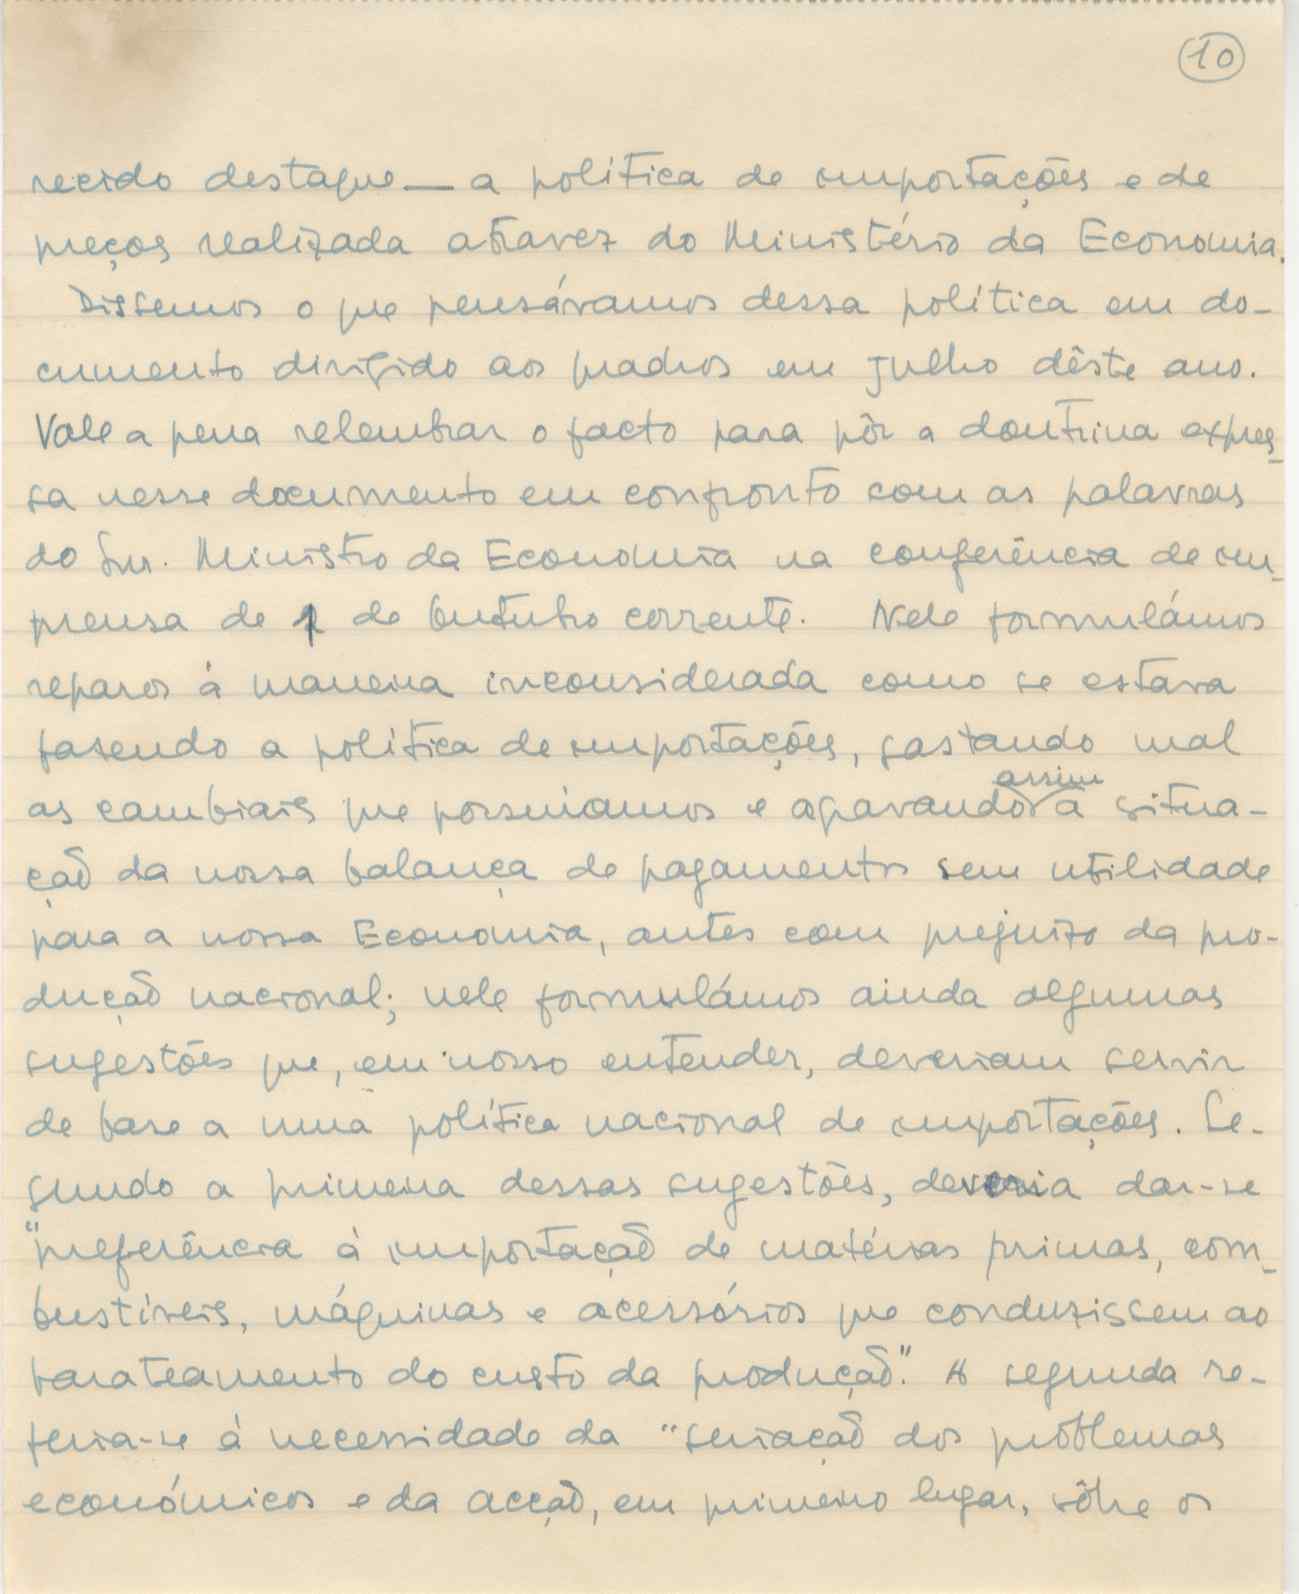 10
recido destaque — a política de importações e de
preços realizada atravez do Ministério da Economia.
Dissemos o que pensávamos dessa política em do-
cumento dirigido aos quadros em Julho dêste ano.
Vale a pena relembrar o facto para pôr a doutrina expres-
sa nesse documento em confronto com as palavras
do Snr. Ministro da Economia na conferência de im-
prensa de 1 de Outubro corrente. Nele formulámos
reparos á maneira inconsiderada como se estava
fasendo a política de importações, gastando mal
assim
as cambiais que possuiamos e agravando a situa-
ção da nossa balança de pagamentos sem utilidade
para a nossa Economia, antes com prejuizo da pro-
dução nacional; nele formulámos ainda algumas
sugestões que, em nosso entender, deveriam servir
de base a uma política nacional de importações. Se-
gundo a primeira dessas sugestões, deveria dar-se
"preferência á importação de matérias primas, com-
bustíveis, máquinas e acessórios que conduzissem ao
barateamento do custo da produção". A segunda re-
feria-se á necessidade da "seriação dos problemas
económicos e da acção, em primeiro lugar, sôbre os